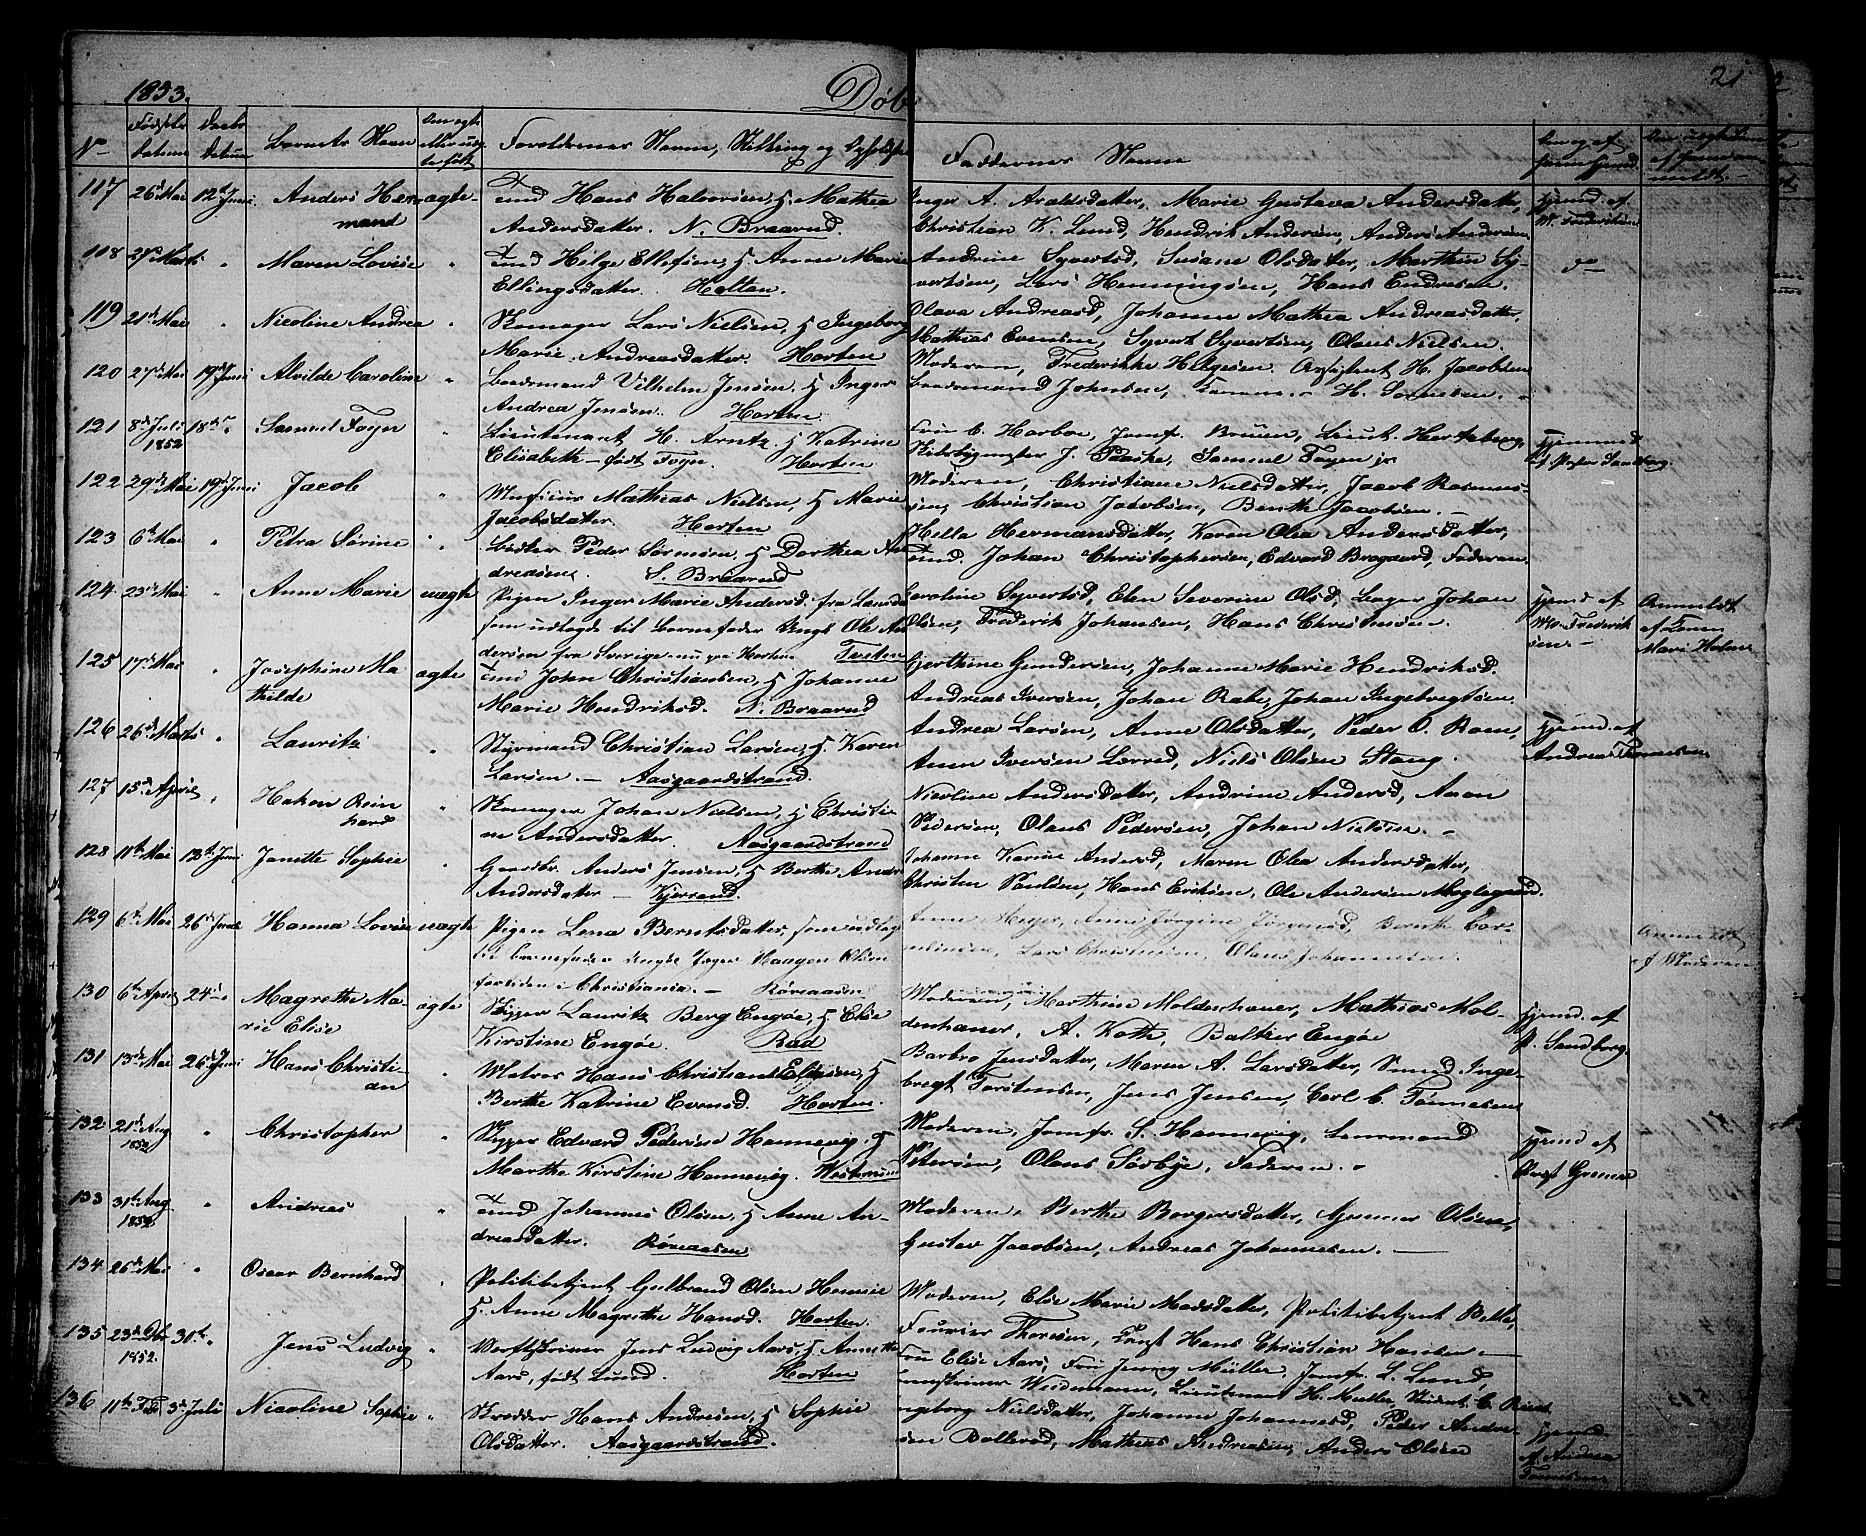 1853.
Døb
21
No
Fødsels
Datum
Daabs
Datum
Barnets Navn
Om ægte
eller uæg
te født
Forældrenes Navne, Stilling og Opholds
Faddernes Navne
117 26d Mai 12te Juni Anders Her- ægte
mand
Hans Halvorsen, H Mathea
Andersdatter. N. Braarud.
Inger A. Araldsdatter, Marie Gustava Andersdatter,
Christian K. Lened, Hendrik Andersen, Anders Andersen
Hjemd. af
W. Frederiksen
118 27d Marts " Maren Lovise "
Helge Ellefsen, H. Anne Marie
Ellingsdatter. Holtan.
Andrine Syvertsd, Susane Olsdatter, Marthin Sy-
vertsen, Lars Henningsen, Hans Endresen.
do
119 21d Mai " Nicoline Andrea "
Skomager Lars Nielsen, H Ingeborg
Marie Andreasdatter. Horten
Olava Andreasd, Johanne Mathea Andreasdatter,
Mathias Evensen, Syvert Syvertsen, Olaus Nielsen.
120 27d Mai 19d Juni Alvilde Caroline "
Baadsmand Vilhelm Jensen, H Inger
Andrea Jensen. Horten
Moderen, Frederikke Helgesen, Assistent H. Jacobsen
Baadsmand Johnsen, H. Sørnesen.
121 8d Juli 18d " Samuel Foyn "
1852
Lieutenant H. Arntz, H Katrine
Elisabeth født Foyn. Horten
Fru C. Harboe, Jomf. Bruen, Lieut. Hertzberg,
Skibsbygmester J. Paaske, Samuel Foyen jr
Hjemmed
af Pastor Sandberg
122 29d Mai 19d Juni Jacob "
Musicus Mathias Nielsen, H Marie
Jacobsdatter. Horten
Moderen, Christiane Nielsdatter, Jacob Rasmus-
sen, Christian Jacobsen, Benth Jacobsen.
123 6te Mai " Petra Sørine "
Peder Sørensen, H Dorthea An
dreasen. S. Braarud
Hella Hermansdatter, Karen Olea Andersdatter,
Johan Christophersen, Edvard Bragaard, Faderen.
124 23d Mai " Anne Marie uægte
Pigen Inger Marie Andersd. fra
som udlagde til Barnefader Ungk Ole An
dersen fra Sverige nu paa Horten Tveten
Caroline Syvertsd, Elen Severine Olsd, Johan
Olsen, Frederik Johansen, Hans Christensen.
Hjemd af
W. Frederik
sen
Anmeldt
af
Mari Holme
125 17d Mai " Josephine Ma ægte
thilde
John Christiansen, H Johanne
Marie Hendriksd. N. Braarud
Gjerthine Gundersen, Johanne Marie Hendriksd.
Andreas Iversen, Johan Rabe, Johan Ingebregtsen
126 26d Marts " Lauritz "
Styrmand Christian Larsen, H Karen
Larsen. Aasgaardstrand.
Andrea Larsen, Anne Olsdatter, Peder O. Roen,
Anne Iversen Lerved, Niels Olsen Stang.
Hjemd. af
Andreas Tønnesen
127 15d April " Haken Rein "
hard
Skomager Johan Nielsen, H Christi-
ne Andersdatter. Aasgaardstrand
Nicoline Andersdatter, Andrine Andersd, Aron
Pedersen, Olaus Pedersen, Johan Nielsen.
128 11te Mai 12te Juni Janitte Sophie "
Gaardbr. Anders Jensen, H Berthe Andr
Andersdatter Kjerrand.
Johanne Karine Andersd, Maren Olea Andersdatter,
Christen Paulsen, Hans Eriksen, Ole Andersen Meglegaard.
129 6te Mai 26d Juni Hanna Lovise uægte
Pigen Lena Berntsdatter, som udlag
til Barnefader Haagen Olsen
fortiden i Christiania. Røreaasen
Anne Meyer, Anne Jørgine Jørgensd, Bernth Cor-
neliusen, Lars Christensen, Olaus Johannesen.
Anmeldt
af Moderen
130 6te April 24d " Magrethe Ma- ægte
rie Elise
Skipper Lauritz Berg Engøe, H Elise
Kirstine Engøe. Rød
Moderen, Marthine Moldenhauer, Mathias Mol-
denhauer, A. Koth, Baltzer Engøe
Hjemd. af
P. Sandberg
131 13d Mai 26d Juni Hans Christi- "
an
Matros Hans Christian Ellefsen, H
Berthe Katrine Evensd. Horten.
Barbro Jensdatter, Maren A. Larsdatter, Svend Inge-
bregt Torstensen, Jens Jensen, Carl C. Tønnesen
132 21d Aug " Christopher "
1852
Skipper Edvard Pedersen Hannevig, H
Marthe Kirstine Hannevig.
Moderen, Jomfr. S. Hannevig, Lensmand
Petersen, Olaus Sørbye, Faderen.
Hjemd af
133 31te Aug " Andreas "
1852
Johannes Olsen, H Anne An-
dreasdatter. Røreaasen
Moderen, Berthe Borgersdatter, Gunner Olsen,
Gustav Jacobsen, Andreas Johannesen.
134 26d Mai " Oscar Bernhard "
Politibetjent Gulbrand Olsen
H. Anne Magrethe Hansd. Horten.
Moderen, Elise Marie Madsdatter, Politibetjent
Fourier Thoresen, Hans Christian Hansen
135 23d 31te " Jens Ludvig "
1852.
Verftskriver Jens Ludvig Aars, H Annette
Aars, født Lund. Horten
Fru Elise Aars, Fru Jenny Müller, Jomfr. L. Lund,
Weidemann, Lieutenant H. Müller, Student C.
136 11te Feb 3d Juli Nicoline Sophie "
Skredder Hans Andresen, H Sophie
Olsdatter. Aasgaardstrand.
Ingeborg Nielsdatter, Johanne Johannesd, Peder Andre-
sen Bollerød, Mathias Andreasen, Anders Olsen
Hjemd
af Andrea
Tønnesen